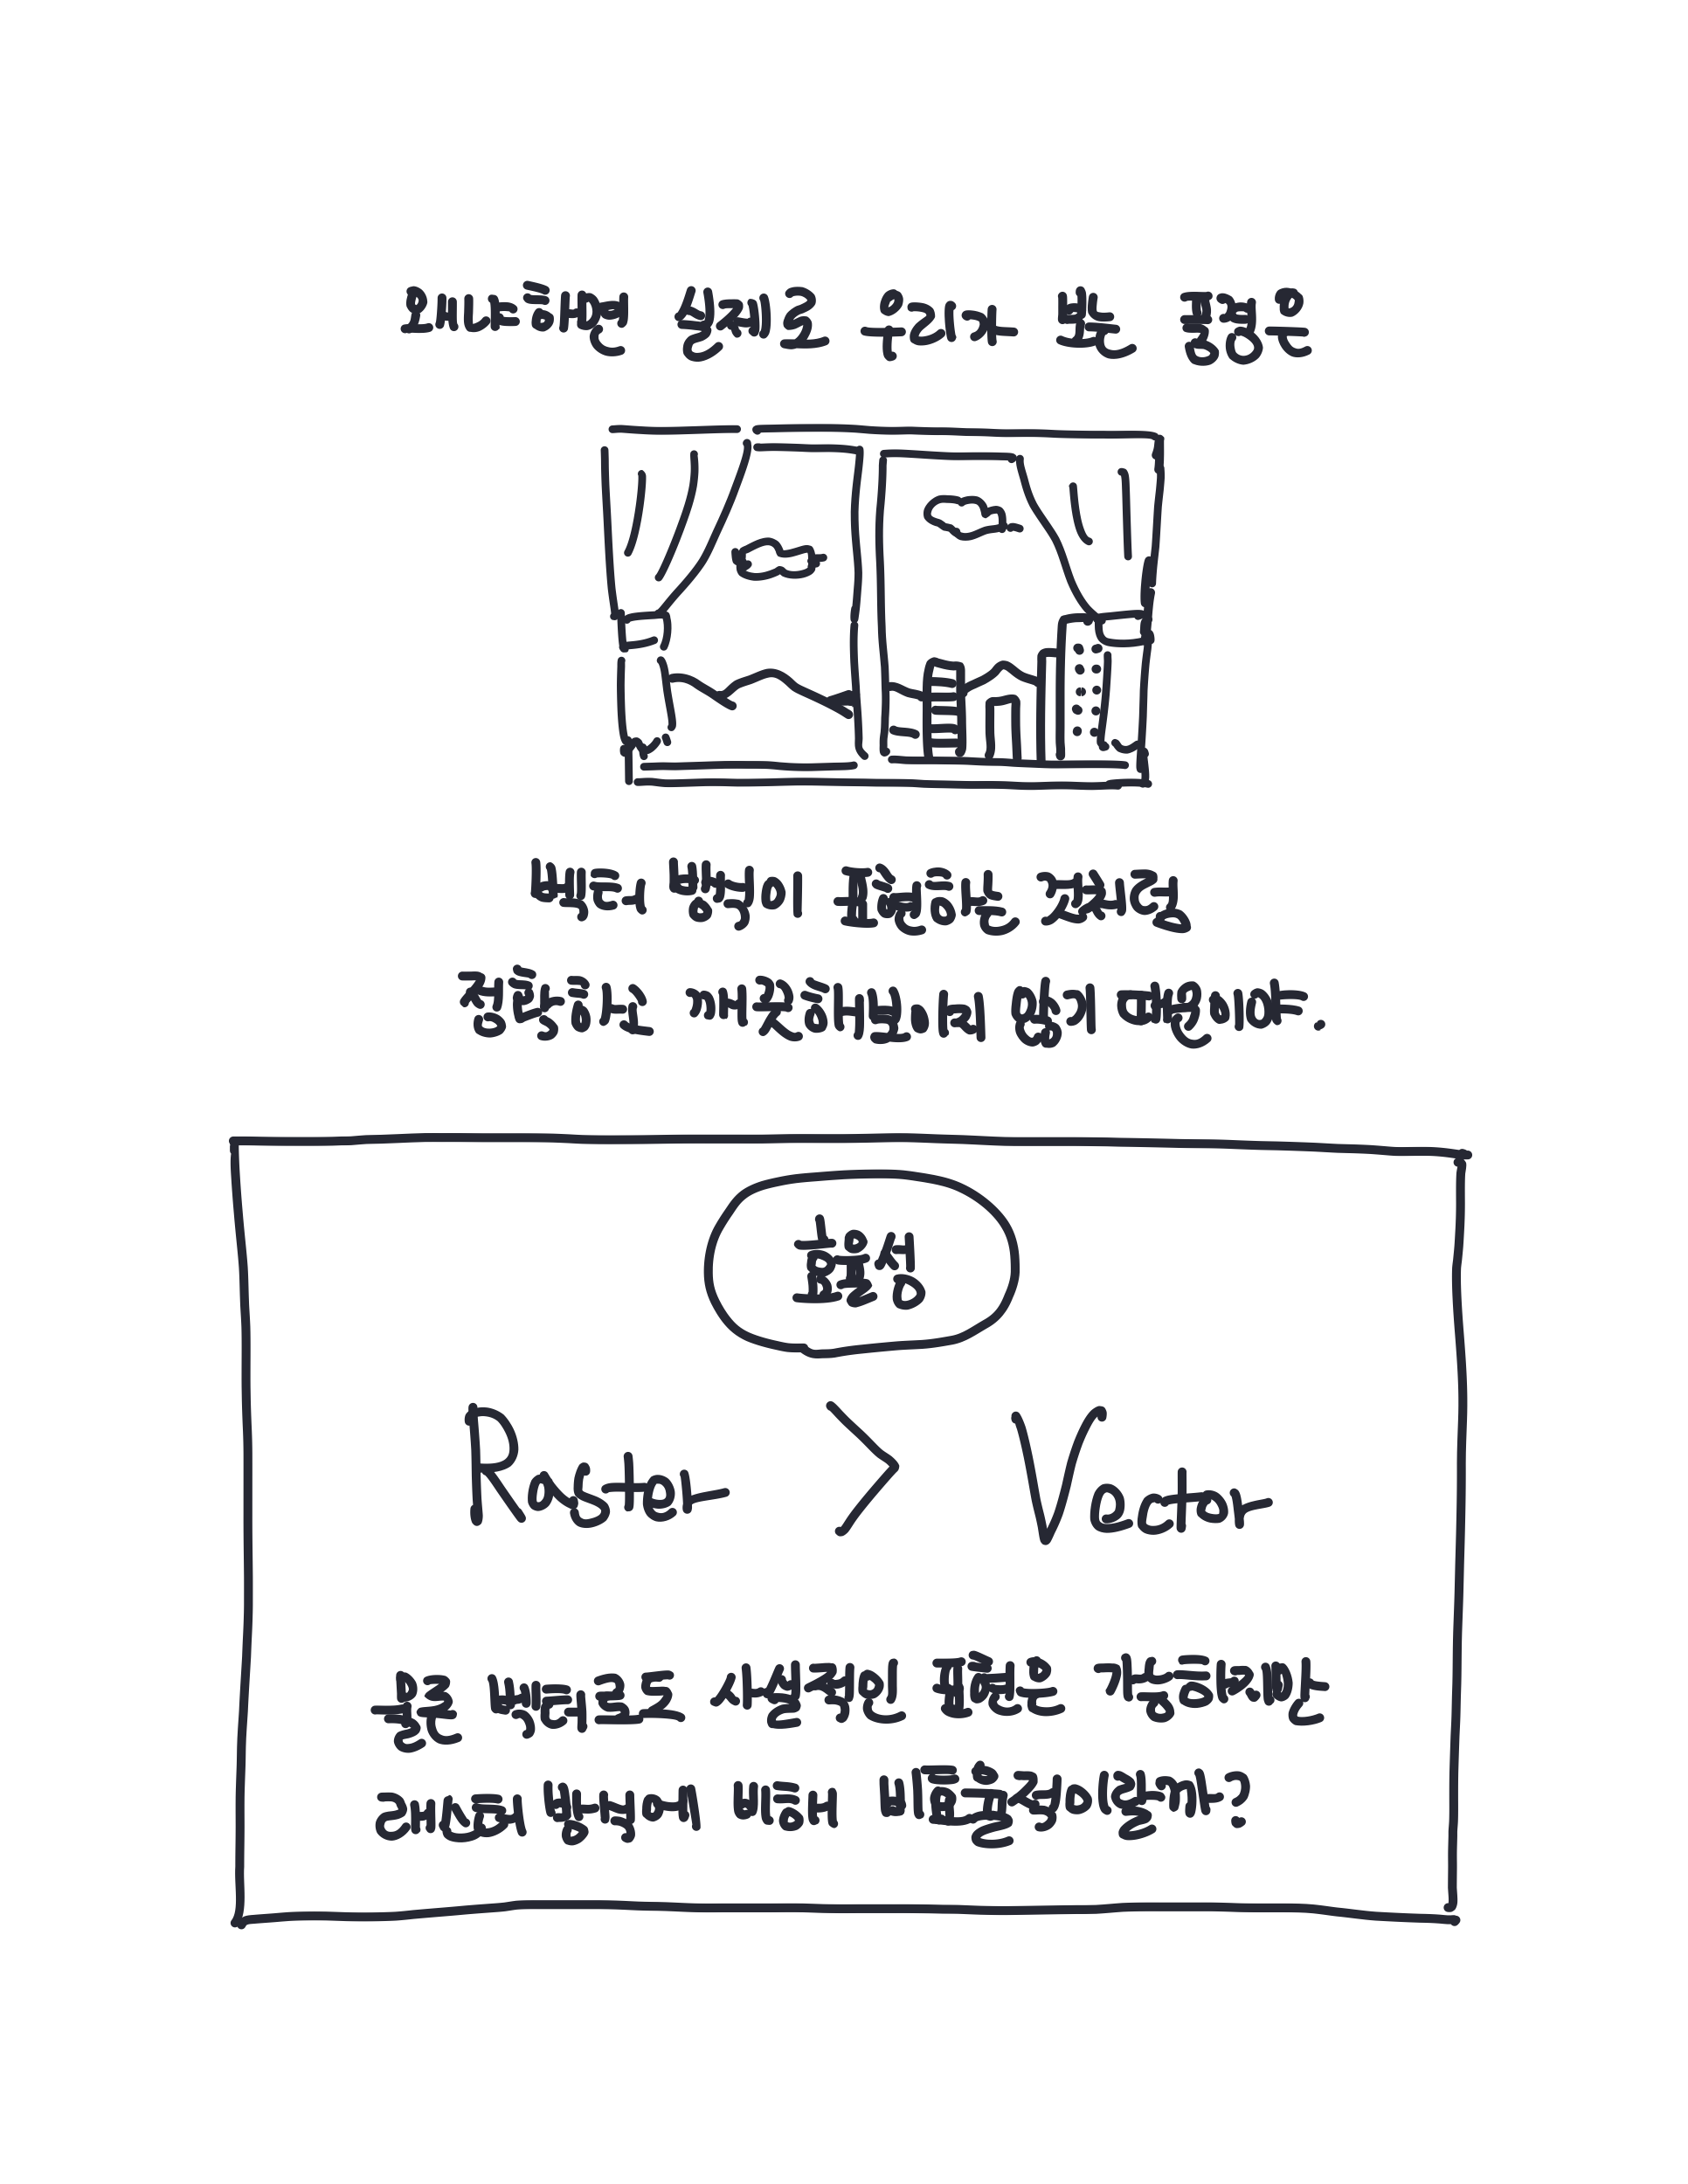 왜냐하면 실제로 우리가 보는 풍경은
벡터 방식이 표현하는 것처럼
정확하고 깨끗해보이지 않기 때문이야.
효율성
Raster > Vector
물론 벡터로도 사실적인 표현은 가능하지만
래스터 방식에 비해 비효율적이랄까?